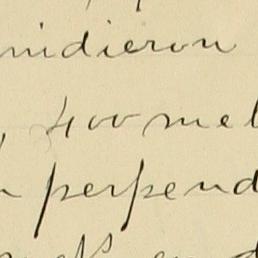 midieron
, 400 met
n perpend